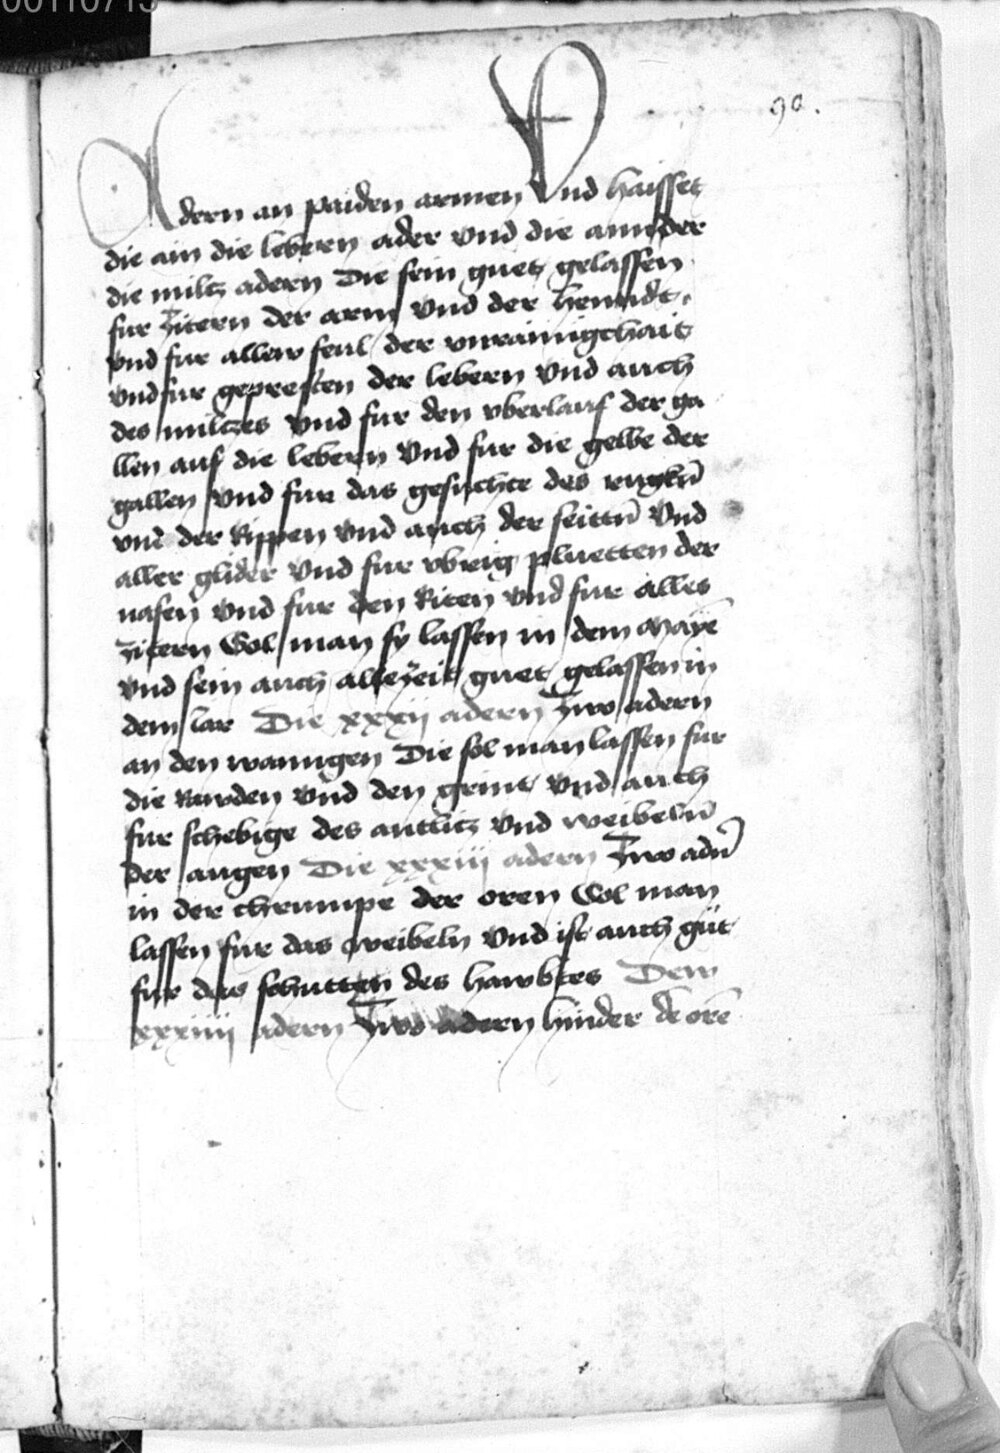 00110715
90.
Adern an paiden armen Vnd haisset
die ain die lebern ader vnd die annder
die miltz adern Die sein guet gelassen
fur Zitern der arm vnd der henndt.
vnd fur allen feul der vnrainigchait
vnd fur gepresten der lebern vnd auch
des miltzes vnd fur den vberlauf der ga
llen auf die lebern vnd fur die gelbe der
gallen vnd fur das gesuchte des rugkn̄
vnd der Rippen vnd auch der seittn̄ vnd
aller glider vnd fur vbrig pluetten der
nasen vnd fur den Riten vnd fur alles
Zitern Sol man sy lassen in dem Mayē
vnd sein auch allezeit guet gelassen in
dem Iar Die xxxij adern Zwo adern
an den wanngen Die sol man lassen fur
die Rawden vnd den grint vnd auch
fur schebige des antlitz vnd weibeln̄
der augen Die xxxiij adern Zwo adn̄
in der chrumpe der oren Sol man
lassen fur das weibeln vnd ist auch gut
fur das schutten des hawbtes Dew
xxxiiij adern Zwo adern hinder dē orē